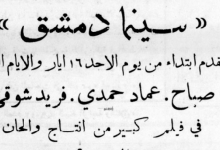 « سينما دمشق »
تقدم ابتداء من يوم الاحد ١٦ ايار والايام
صباح . عماد حمدي . فريد شوقي
في فيلم كبير من انتاج والحان